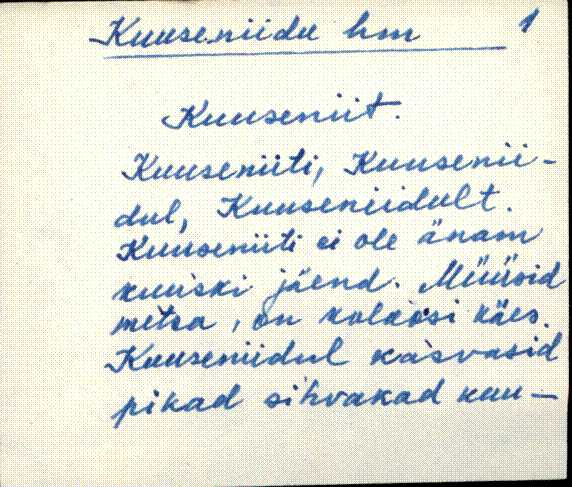 Kuuseniidu hm 1
Kuuseniit.
Kuuseniiti, Kuusenii-
dul, Kuuseniidult.
Kuuseniiti ei ole änam
kuu'ski jäend. Müüsid
metsa, on kolkosi käes.
Kuuseniidul ka'svasid
pikad sihvakad kuu-